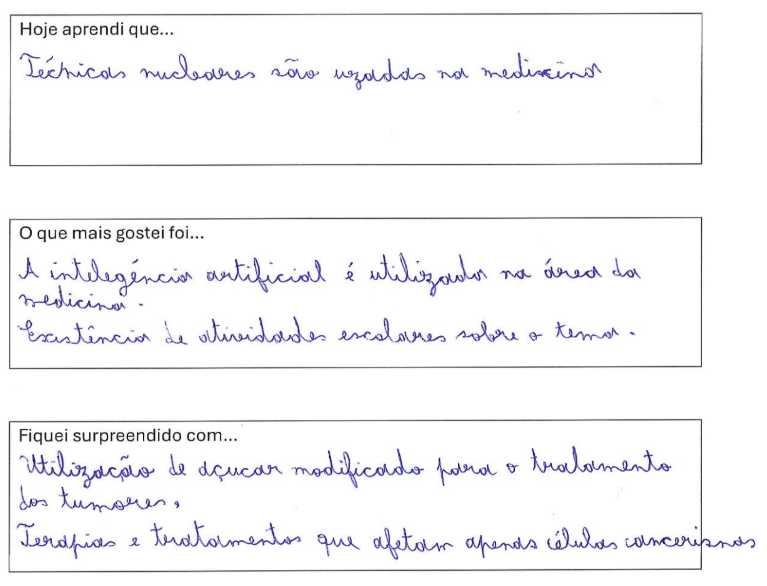 Hoje aprendi que...
Técnicas nucleares são uzadas na medicina
O que mais gostei foi...
A intelegência artificial é utilizada na área da
medicina.
Existência de atividades escolares sobre o tema.
Fiquei surpreendido com...
Utilização de açucar modificado para o tratamento
dos tumores,
Terapias e tratamentos que afetam apenas células cancerisnas